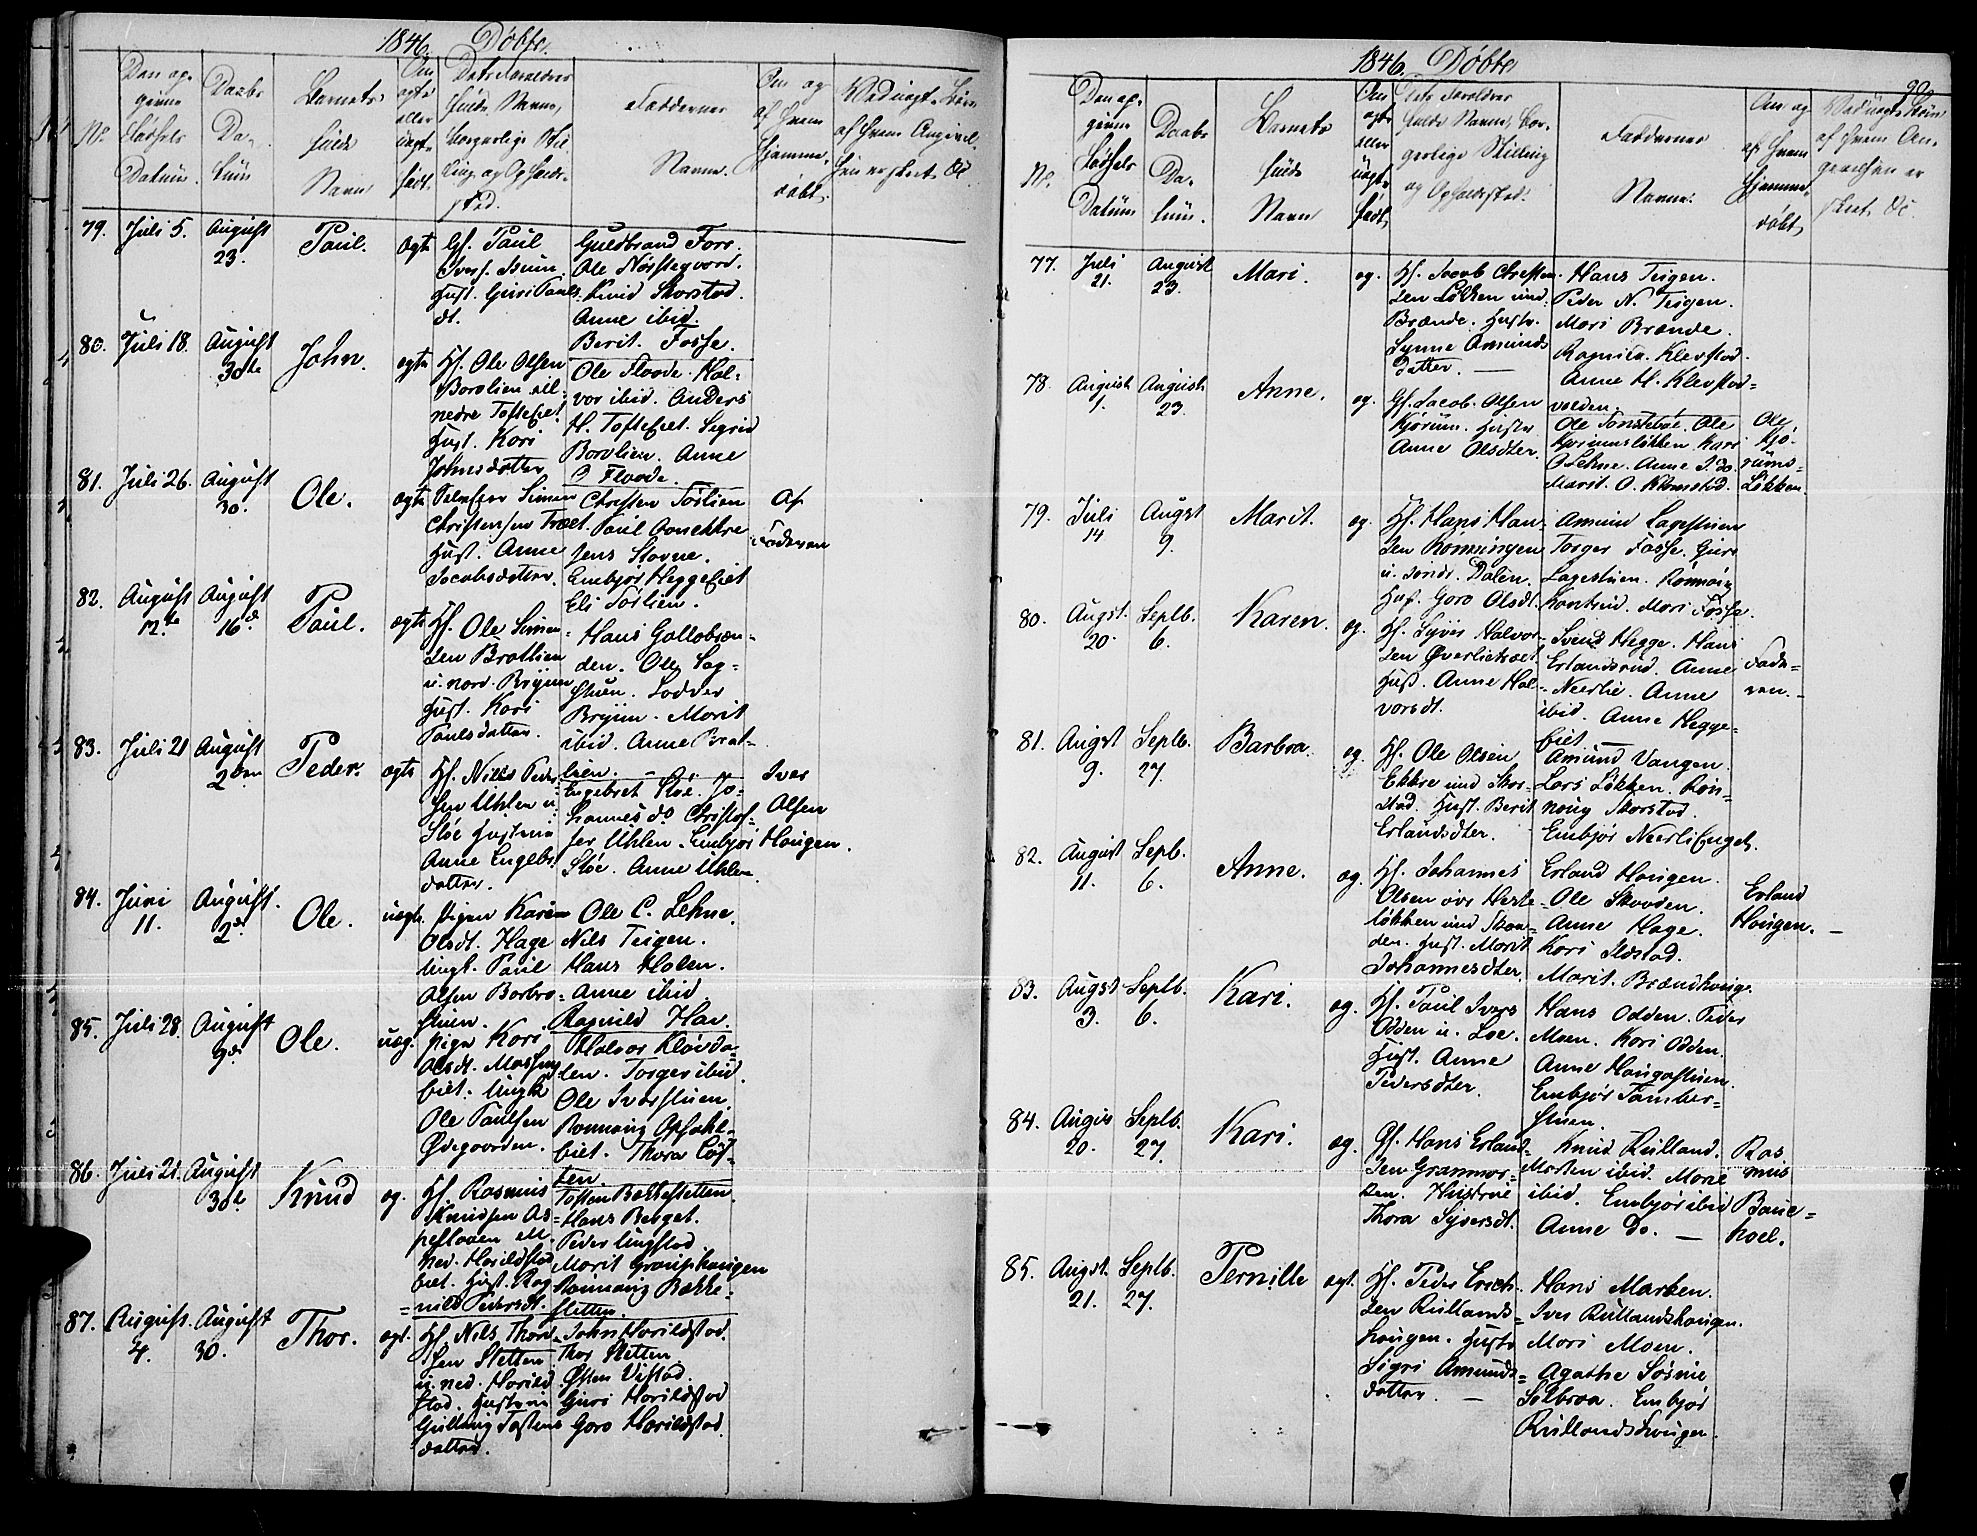 1846. Døbte.
No.
Den op-
givne
Fødsels
Datum.
Daabs
Da-
tum
Barnets
fulde
Navn
Om
ægte
eller
uægte
født.
Dets Forældres
fulde Navne,
borgerlige Stil-
ling og Opholds-
sted.
Faddernes
Navne.
Om og
af hvem
hjemme-
døbt.
Ved uægte Børn
af hvem Angivel-
sen er skeet &c
79. Juli 5. August 23. Paul. ægte
Gf. Paul
Ivers. Isum.
Hust. Guri Pauls-
dt.
Guldbrand Foss.
Ole Nørstegaard.
Knud Skorstad.
Anne ibid.
Berit Fosse.
80. Juli 18. August 30te John. ægte
Hf. Ole Olsen
Borolien eil.
nedre Toftefiet.
Hust. Kari
Johnsdatter
Ole Flaade. Hal-
vor ibid. Anders
H. Toftefiet. Sigrid
Borolien. Anne
O Flaade.
81. Juli 26. August 30. Ole. ægte
Selveier Simen
Christensen Træet.
Hust. Anne
Jacobsdatter.
Christen Torlien
Paul
Jens Stavne.
Embjør Heggefiet
Eli Torlien.
Af
Faderen
82. August 12te August 16de Paul. ægte
Hf. Ole Simen-
sen Bratlien
u. nord. Bryun
Hust. Kari
Paulsdatter.
Hans Gallobræn-
den. Ole Lag-
stuen. Lodver
Bryun. Marit
ibid. Anne Brat-
lien. -
83. Juli 21 August 2den Peder. ægte
Hf. Nils Peder-
sen Uhlen u.
Sløe Hustrue
Anne Engebr.
datter.
Engebret Sløe. Jo-
hannes do Christof-
fer Uhlen. Embjør
Sløe. Anne Uhlen.
Iver
Olsen
Hougen.
84. Juni 11. August 2de Ole. uægte
Pigen Karen
Olsdt. Hage
Ungk. Paul
Olsen Borbro-
stuen.
Ole C. Lehne.
Nils Teigen.
Hans Holen.
Anne ibid
Ragnild Hav.
85. Juli 28. August 9de Ole. uæg.
Pige Kari
Olsdt.
eiet. Ungk
Ole Paulsen
Ødegaarden.
Halvor Kløvda-
len. Torger ibid.
Ole Iverstuen.
Ronnaug Opsahl-
eiet. Thora
86. Juli 21. August 30te Knud æg.
Hf. Rasmus
Knudsen As-
peslaaen u.
ned. Harildstad
eiet. Hust. Rag-
nild Pedersdt.
Tosten Bakkestetten.
Hans Berget.
Peder Ungstad.
Marit
Ronnaug Bakke-
stetten.
87. August. 4. August 30. Thor. ægt.
Hf. Nils Thord-
sen Stetten
u. ned. Harild
stad. Hustrue
Gulloug Tostens
datter.
John Harildstad.
Thor Stetten
Østen Vistad.
Guri Harildstad
Goro Harildstad
1846. Døbte
90.
No.
Den op-
givne
Fødsels
Datum
Daabs
Da-
tum.
Barnets
fulde
Navn
Om
ægte
eller
uægte
født.
Dets Forældres
fulde Navne, bor-
gerlige Stilling
og Opholdssted.
Faddernes
Navne.
Om og
af hvem
hjemme-
døbt.
Ved uægte Børn
af hvem An-
givelsen er
skeet &c.
77. Juli 21. August 23. Mari. æg.
Hf. Jacob Christen-
sen Løkken und.
Brænde. Hustr.
Synne Amunds
datter. —
Hans Teigen.
Peder N. Teigen.
Mari Brænde.
Ragnild Klevstad.
Anne H. Klevstad-
volden.
78. August 1. August 23. Anne. æg.
Gf. Jacob. Olsen
Kjørum. Hustr
Anne Olsdter.
Ole Tonstebøe. Ole
Kjørumsløkken Kari
O Lehne. Anne J. do.
Marit. O. Klomstad.
Ole
Kjø-
rums-
Løkken.
79. Juli 14 Augst 9. Marit. æg.
Hf. Hans Han-
sen Ronningen
u. søndr. Dalen.
Hust. Goro Olsdt.
Amund Lagestuen
Torger Fosse. Guri
Lagestuen. Ronnaug
Kontrud. Mari Fosse.
80. Augst. 20 Septb. 6. Karen. æg.
Hf. Syver Halvor-
sen Øverlietræet
Hust. Anne Hal-
vorsdt.
Svend Hegge. Hans
Erlandsrud. Anne
Neerlie. Anne
ibid. Anne Hegge-
eiet —
Fade-
ren. -
81. Augst 9. Septb. 27. Barbra. æg.
Hf. Ole Olsen
Ekkre und Skor-
stad. Hust. Berit
Erlandsdter.
Amund Vangen.
Lars Løkken. Ron-
noug Skorstad.
Embjør Neerliengen.
82. August 11. Septb. 6. Anne. æg.
Hf. Johannes
Olsen øvr Herte-
løkken und Skaa-
den. Hust. Marit
Johannesdter
Erland Hougen.
Ole Skaaden.
Anne Hage.
Kari Ilstad.
Marit. Brændhouge.
Erland
Hougen. —
83. Augst 3. Septb. 6. Kari. æg.
Hf. Paul Ivers
Odden u. Loe.
Hust. Anne
Pedersdter.
Hans Odden. Peder
Moen. Kari Odden.
Anne Hougastuen.
Embjør Tomber-
stuen.
84. Augus 20. Septb. 27. Kari. æg.
Gf. Hans Erland-
sen Granmor-
ken. Hustrue
Thora Syversdt.
Knud Rulland.
Morten ibid. Marie
ibid. Embjør ibid
Anne Do. —
Ras
mus
Baue-
hoel.
85. Augst. 21. Septb. 27. Pernille ægt.
Hf. Peder Erich-
sen Rullands-
hougen. Hustr
Sigri Amunds-
datter. —
Hans Marken.
Iver Rullandshougen.
Mari Moen.
Agathe Sørnie
Solbraa. Embjør
Rullandshougen.